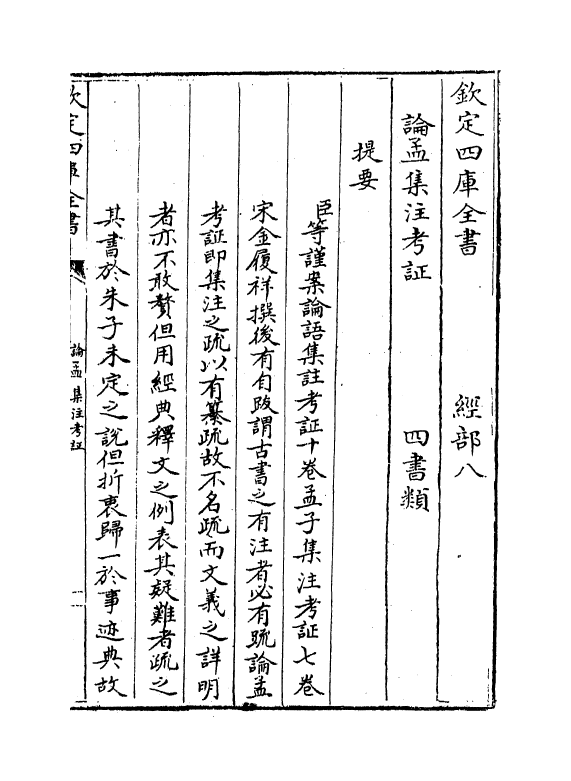 欽定四庫全書 經部八
論孟集注考証 四書類
提要
臣等謹案論語集註考証十卷孟子集注考証七卷
宋金履祥撰後有自跋謂古書之有注者必有疏論孟
考証即集注之疏以有纂疏故不名疏而文義之詳明
者亦不敢贅但用經典釋文之例表其疑難者疏之
其書於朱子未定之說但折衷歸一於事迹典故
欽定四庫全書 論孟集注考証